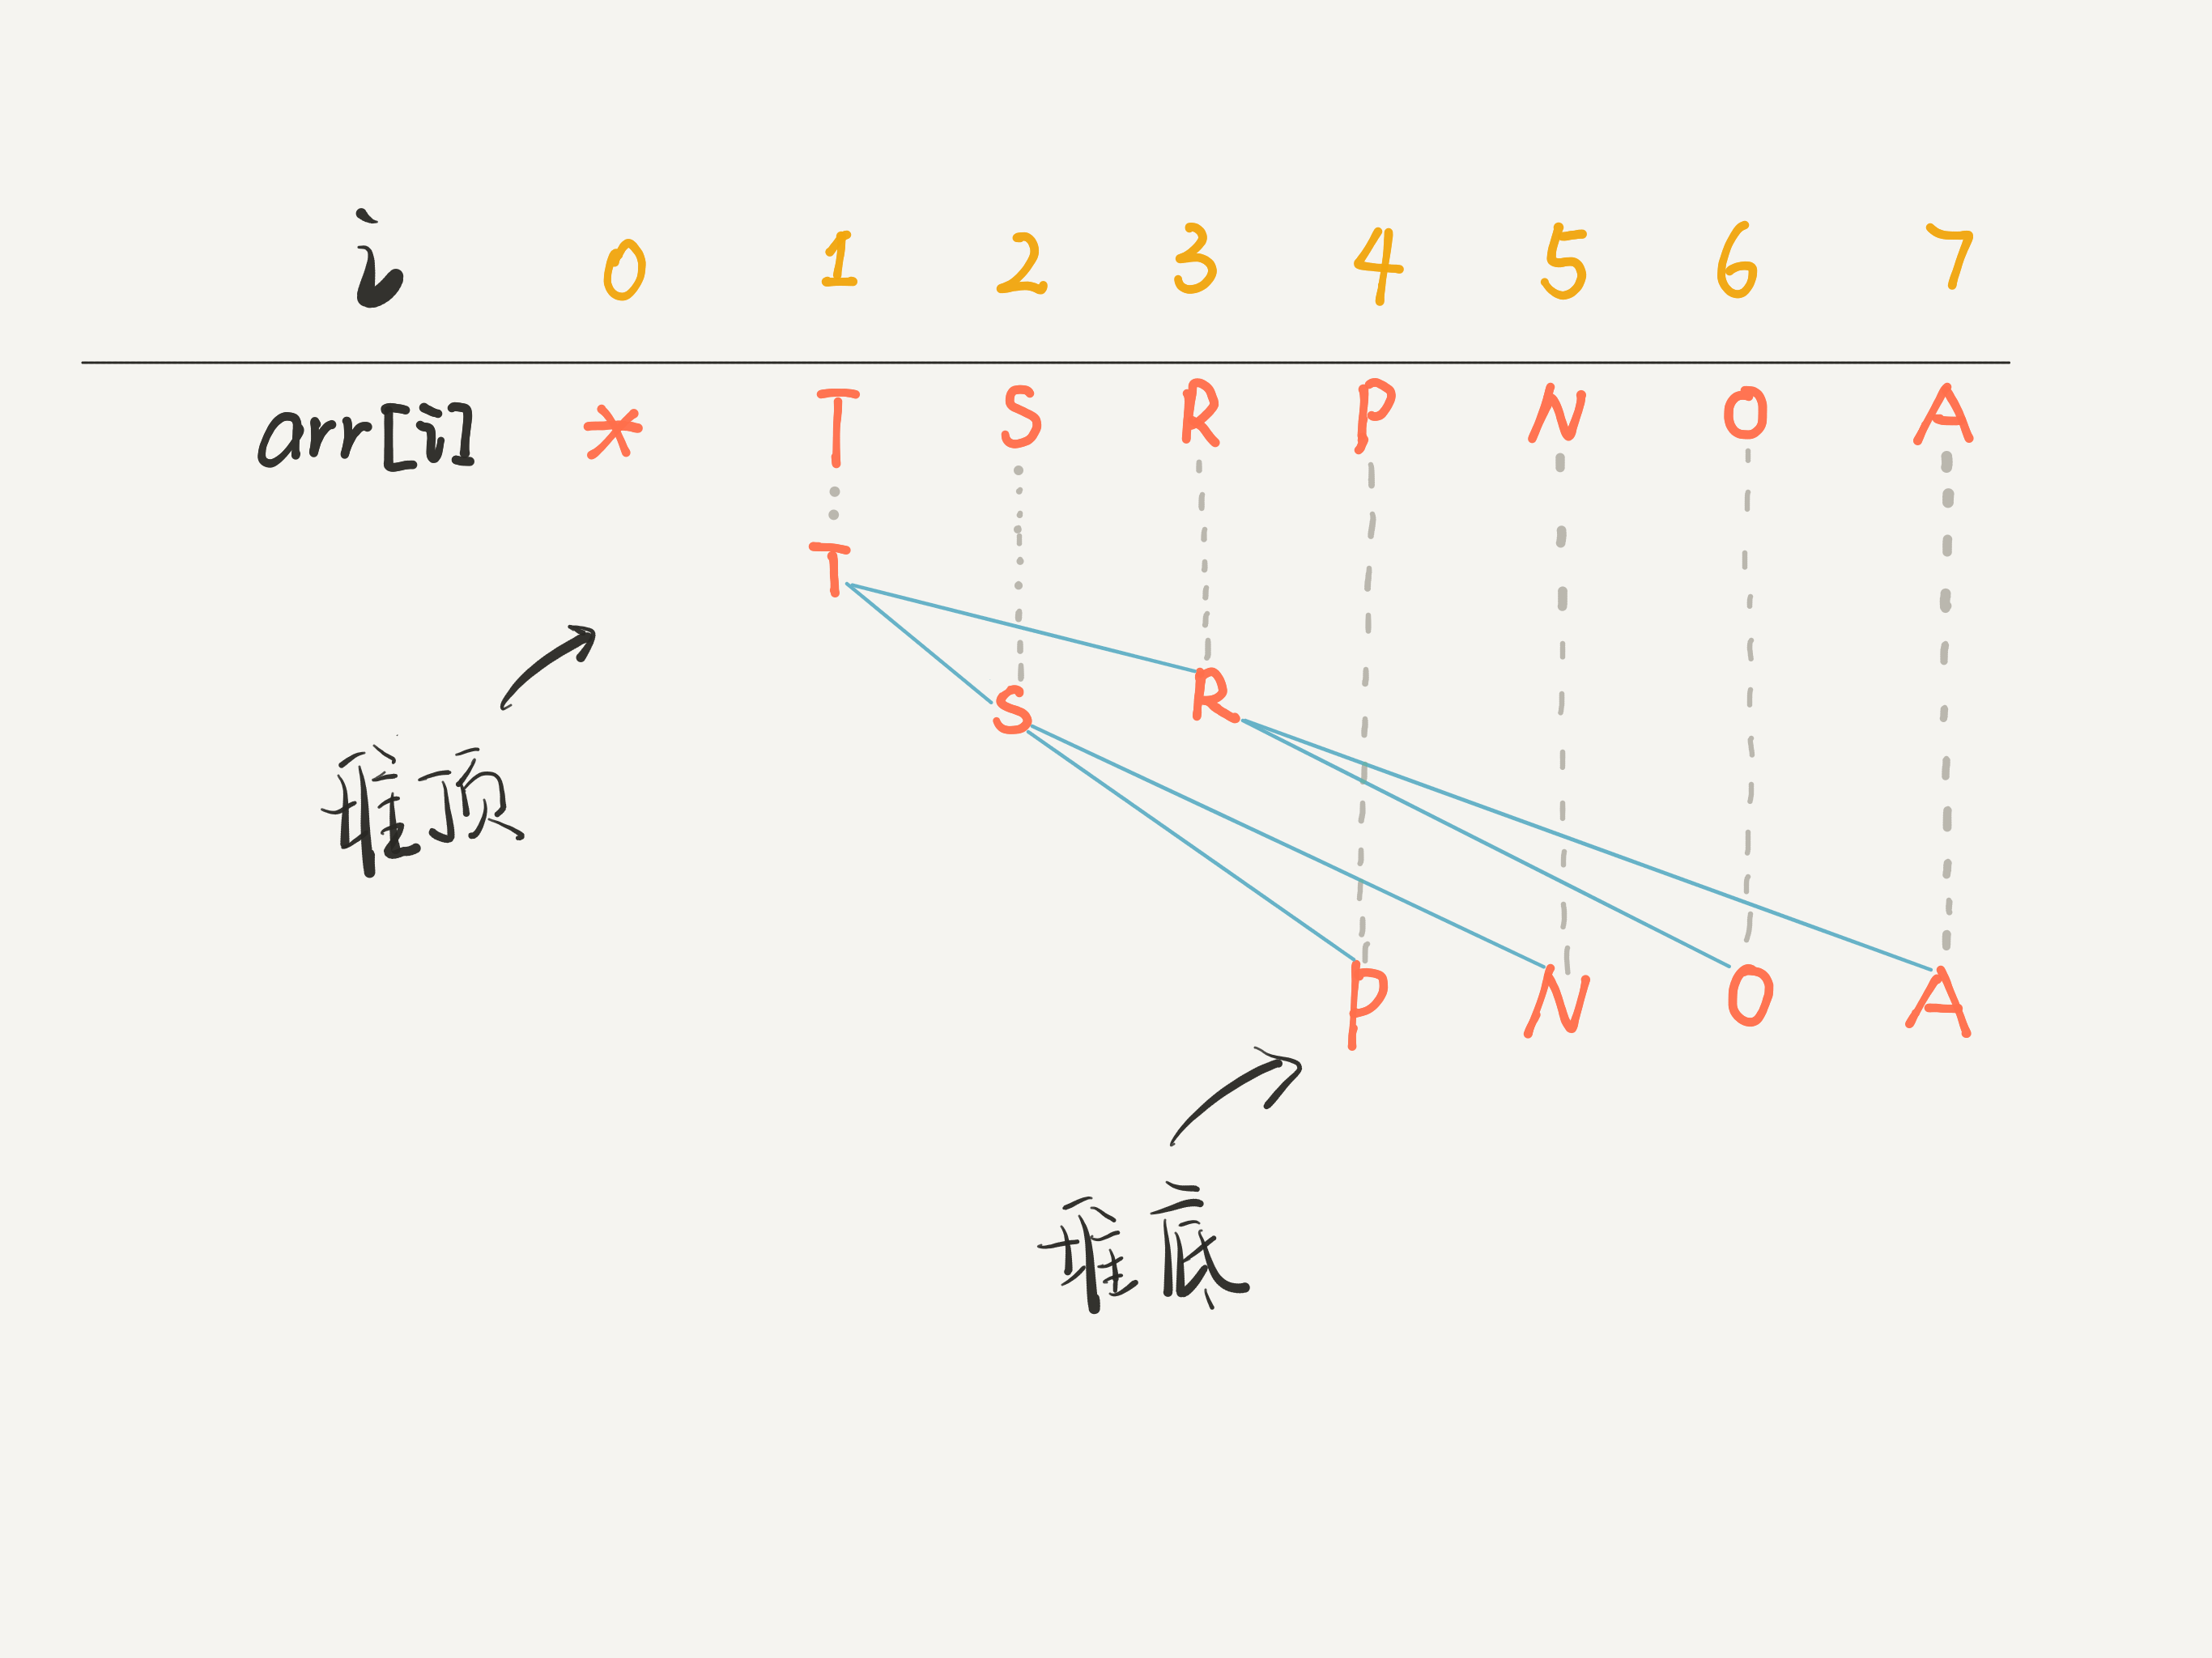 i 0 1 2 3 4 5 6 7
arr[i] * T S R P N O A
T
S R
堆顶
P N O A
堆底